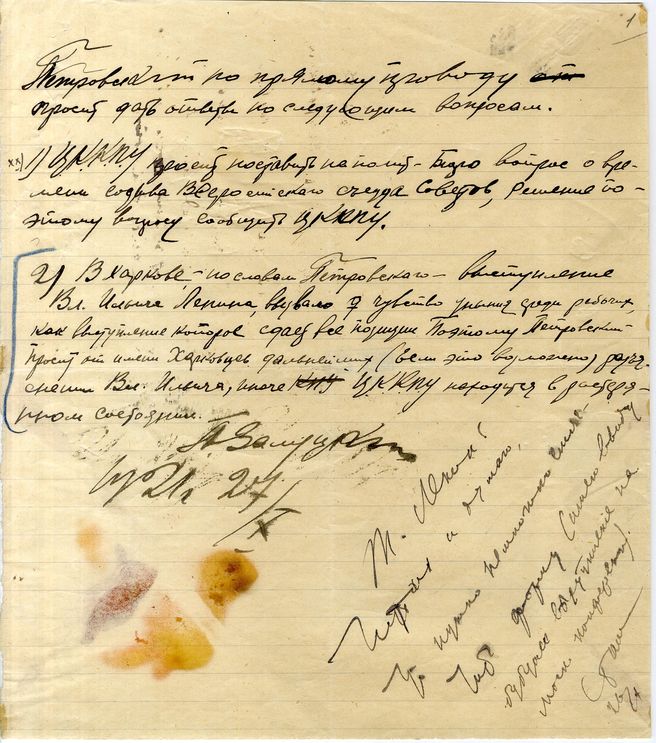 1
Петровский по прямому проводу от
просит дать ответы по следующим вопросам.
xx) 1) ЦККПУ просит поставить на полит-Бюро вопрос о вре-
мени созыва Всероссийского съезда Советов, решение по
этому вопросу сообщить ЦККПУ.
2) В Харькове, - по словам Петровского - выступление
Вл. Ильича Ленина, вызвало чувство уныния среди рабочих,
как выступление которое сдает все позиции Поэтому Петровский
просит от имени Харьковцев дальнейших (если это возможно) разъ-
яснений Вл. Ильича, иначе КПУ ЦККПУ находится в растерян-
ном состоянии.
П. Залуцкий
21 27/X
Т. Ленин!
я думаю,
нужно немножко
форму (имею ввиду
будущее выступление на
моск конференции).